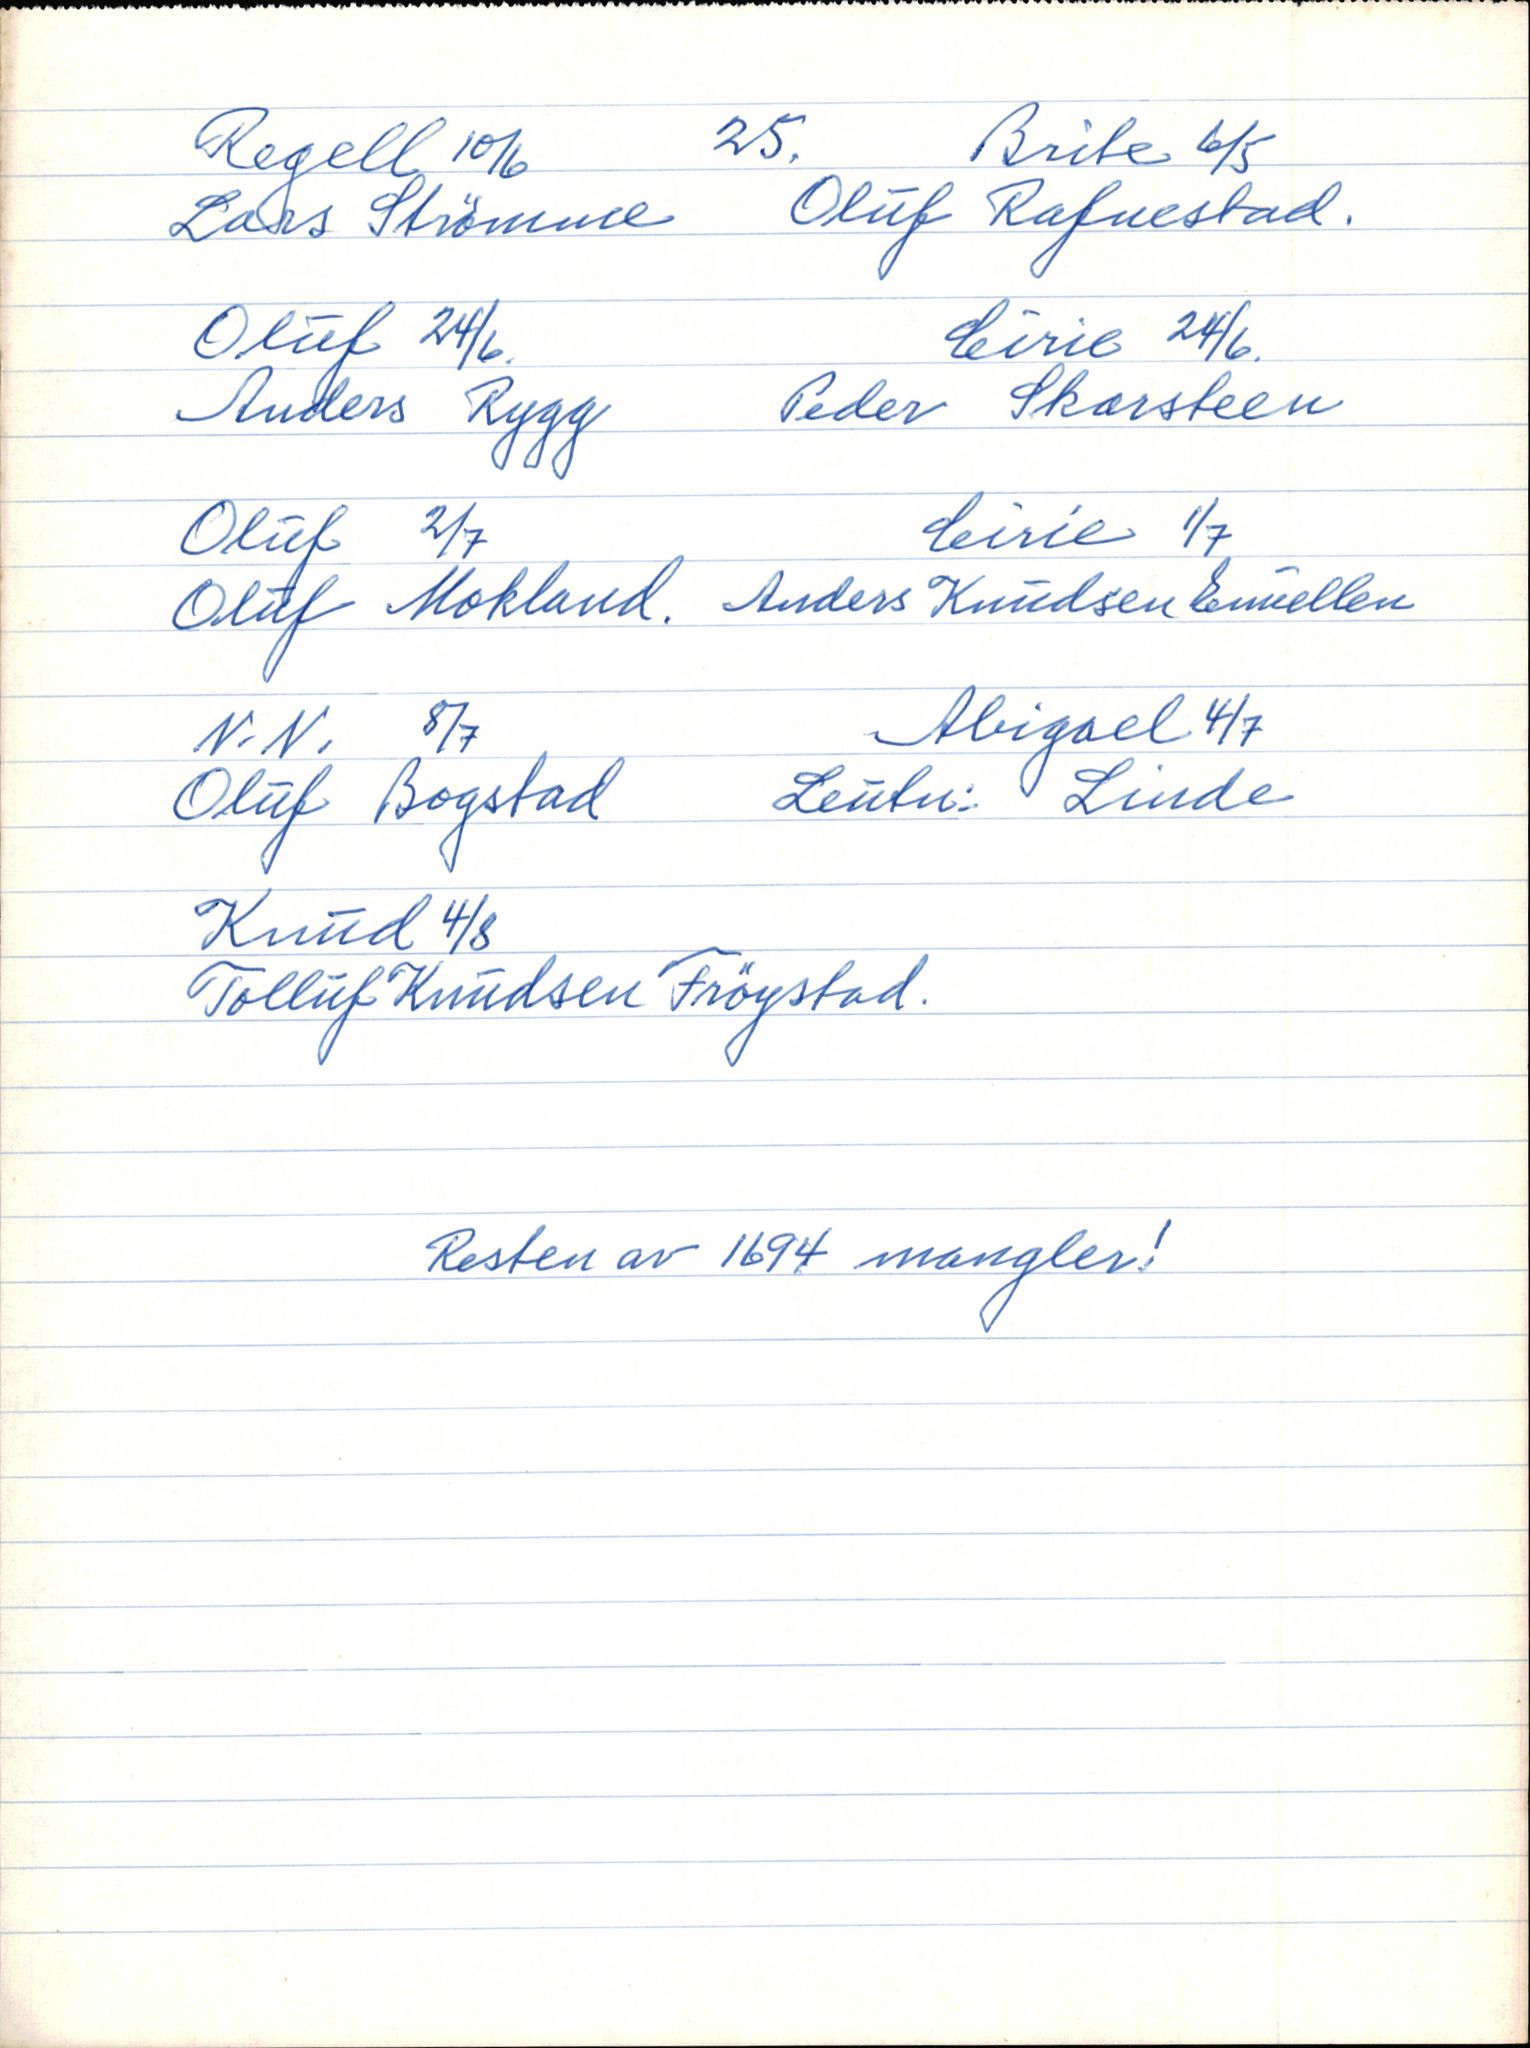 Regell 10/6 25. Brite 6/5
Lars Strömme Oluf Rafnestad.
Oluf 24/6. Eirie 24/6.
Anders Rygg Peder Skarsteen
Oluf 2/7 Eirie 1/7
Oluf Mokland. Anders Knudsen
N.N. 8/7 Abigael 4/7
Oluf Bogstad Leutn: Linde
Knud 4/8
Tolluf Knudsen Fröystad.
Resten av 1694 mangler!